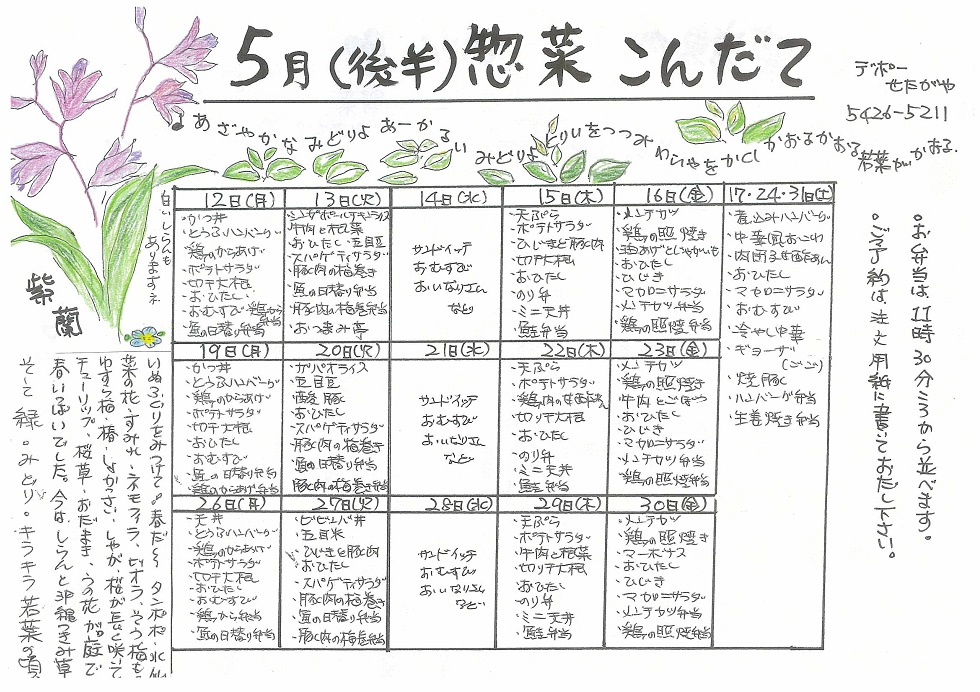 5月(後半)惣菜 こんだて
デポー
せたがや
5426-5211
♪あざやかなみどりよ あーかるい みどりよ とりいをつつみ わらやをかくし かおるかおる 若葉がかおる.
白いしらんも
ありますネ
紫蘭
12日(月)
・かつ丼
・とうふハンバーグ
・鶏のからあげ
・ポテトサラダ
・切干大根
・おひたし
・おむすび・鶏から弁当
・魚の日替り弁当
13日(火)
・シンガポールチキンライス
・牛肉と根菜
・おひたし・五目豆
・スパゲティサラダ
・豚肉の梅巻き
・魚の日替り弁当
・豚肉の梅巻弁当
・おつまみ等
14日(水)
サンドイッチ
おむすび
おいなりさん
など
15日(木)
・天ぷら
・ポテトサラダ
・ひじきと豚肉
・切干大根
・おひたし
・のり弁
・ミニ天丼
・鮭弁当
16日(金)
・メンチカツ
・鶏の照焼き
・油あげとじゃがいも
・おひたし
・ひじき
・マカロニサラダ
・メンチカツ弁当
・鶏の照焼弁当
17・24・31日(土)
・煮込みハンバーグ
・中華風おこわ
・肉団子甘酢あん
・おひたし
・マカロニサラダ
・おむすび
・冷やし中華
・ギョーザ
・焼豚
・ハンバーグ弁当
・生姜焼き弁当
19日(月)
・かつ丼
・とうふハンバーグ
・鶏のからあげ
・ポテトサラダ
・切干大根
・おひたし
・おむすび
・魚の日替り弁当
・鶏のからあげ弁当
20日(火)
・ガパオライス
・五目豆
・酢豚
・おひたし
・スパゲティサラダ
・豚肉の梅巻き
・魚の日替り弁当
・豚肉の梅巻弁当
21日(水)
サンドイッチ
おむすび
おいなりさん
など
22日(木)
・天ぷら
・ポテトサラダ
・鶏肉の甘酢あん
・切干大根
・おひたし
・のり弁
・ミニ天丼
・鮭弁当
23日(金)
・メンチカツ
・鶏の照焼き
・牛肉とごぼう
・おひたし
・ひじき
・マカロニサラダ
・メンチカツ弁当
・鶏の照焼弁当
26日(月)
・天丼
・とうふハンバーグ
・鶏のからあげ
・ポテトサラダ
・切干大根
・おひたし
・おむすび
・鶏から弁当
・魚の日替り弁当
27日(火)
・ビビンバ丼
・五目米
・ひじきと豚肉
・おひたし
・スパゲティサラダ
・豚肉の梅巻き
・魚の日替り弁当
・豚肉の梅巻弁当
28日(水)
サンドイッチ
おむすび
おいなりさん
など
29日(木)
・天ぷら
・ポテトサラダ
・牛肉と根菜
・切干大根
・おひたし
・のり弁
・ミニ天丼
・鮭弁当
30日(金)
・メンチカツ
・鶏の照焼き
・マーボナス
・おひたし
・ひじき
・マカロニサラダ
・メンチカツ弁当
・鶏の照焼弁当
。お弁当は、11時30分ころから並べます。
。ご予約は、注文用紙に書いておだし下さい。
いぬふぐりをみつけて。春だ〜 タンポポ・水仙
菜の花・すみれ・ネモフィラ、ビオラ、そう梅も
ゆすら梅・椿・しかざき、しゃが、桜が長く咲いて
チューリップ、桜草・おだまき、うの花が庭で
春いっぱいでした。今は、しらんと沖縄つきみ草
そして緑。みどり。キラキラ若葉の頃